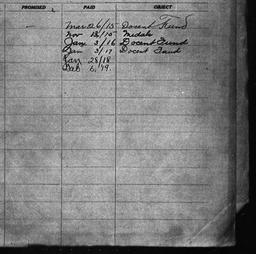 PROMISED PAID OBJECT
Mar 26/15 Docent Fund
Nov 18/15 Medals
Jan 3/16 Docent Fund
Jan 3/17 Docent Fund
Jan 28/18
Feb 6, 19.